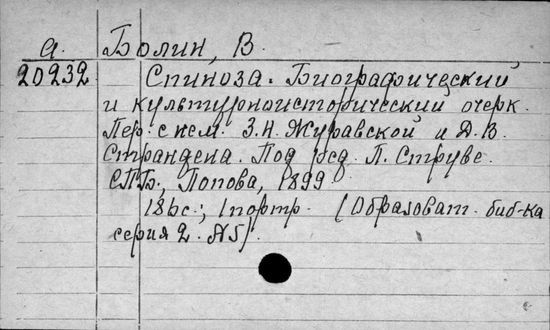 а. Болин, В.
20232 Спиноза. Биографический
и культурноисторический очерк.
Пер. с нем. З.Н. Журавской и Д.В.
Страндена. Под ред. П. Струве.
СПБ., Попова, 1899.
186с.; 1 портр. (Образоват. биб-ка
серия 2. №5).